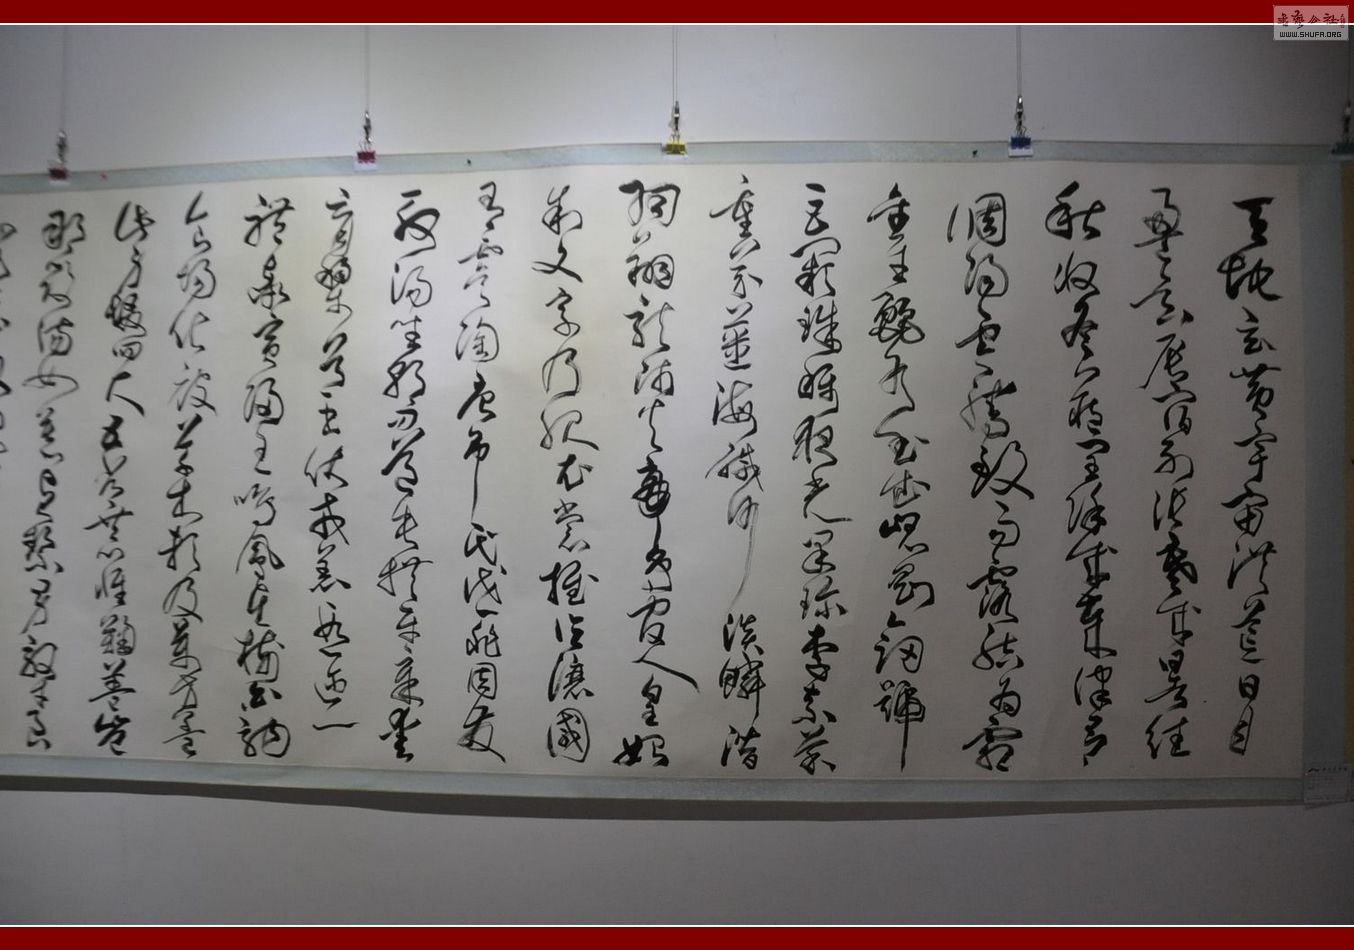 天地玄黃宇宙洪荒日月
盈昃辰宿列張寒來暑往
秋收冬藏閏餘成歲律呂
調陽雲騰致雨露結為霜
金生麗水玉出崑岡劍號
巨闕珠稱夜光果珍李柰菜
重芥薑海鹹河淡鱗潛
羽翔龍師火帝鳥官人皇始
制文字乃服衣裳推位讓國
有虞陶唐弔民伐罪周發
殷湯坐朝問道垂拱平章愛
育黎首臣伏戎羌遐邇一
體率賓歸王鳴鳳在樹白駒
食場化被草木賴及萬方蓋
此身髮四大五常恭惟鞠養豈
敢毀傷女慕貞潔男效才良
書藝公社
WWW.SHUFA.ORG